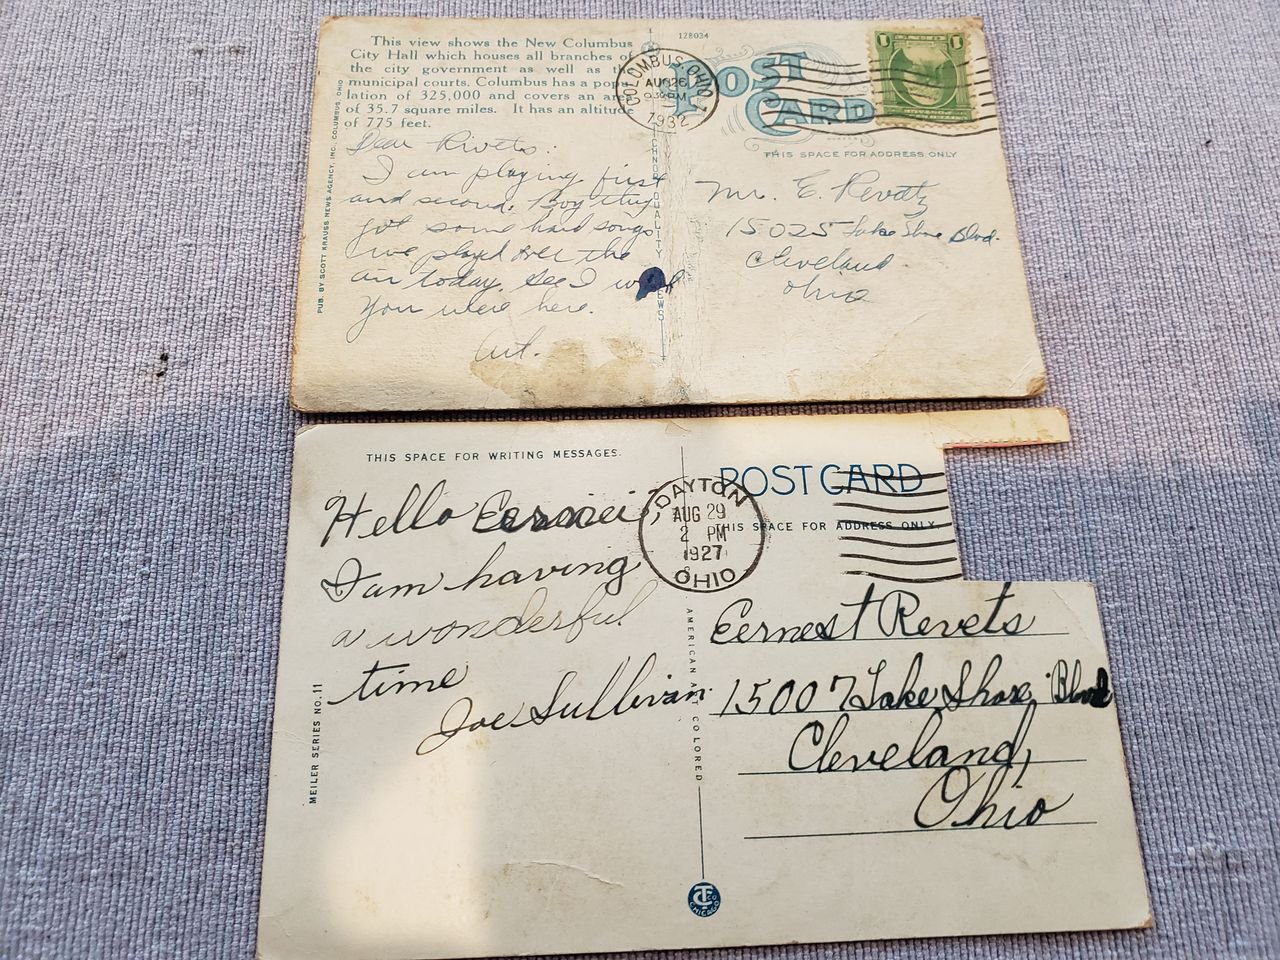 This view shows the New Columbus
City Hall which houses all branches of
the city government as well as the
municipal courts. Columbus has a popu-
lation of 325,000 and covers an area
of 35.7 square miles. It has an altitude
of 775 feet.
Dear Rivets:
I am playing first
and second. Boy they
got some hard songs
we played over the
air today. Gee I wish
you were here.
Art.
PUB. BY SCOTT KRAUSS NEWS AGENCY, INC. COLUMBUS, OHIO
128034
COLUMBUS, OHIO
AUG 26
9 30 PM
1932
POST
CARD
1 1
THIS SPACE FOR ADDRESS ONLY
QUALITY
Mr. E. Revetz
15025 Lake Shore Blvd.
Cleveland
Ohio
THIS SPACE FOR WRITING MESSAGES.
Hello
I am having
a wonderful
time
Joe Sullivan
MEILER SERIES NO. 11
DAYTON
AUG 29
2 PM
1927
OHIO
POST CARD
THIS SPACE FOR ADDRESS ONLY.
AMERICAN ART COLORED
Eernest Revets
15007 Lake Shore Blvd
Cleveland,
Ohio
CHICAGO